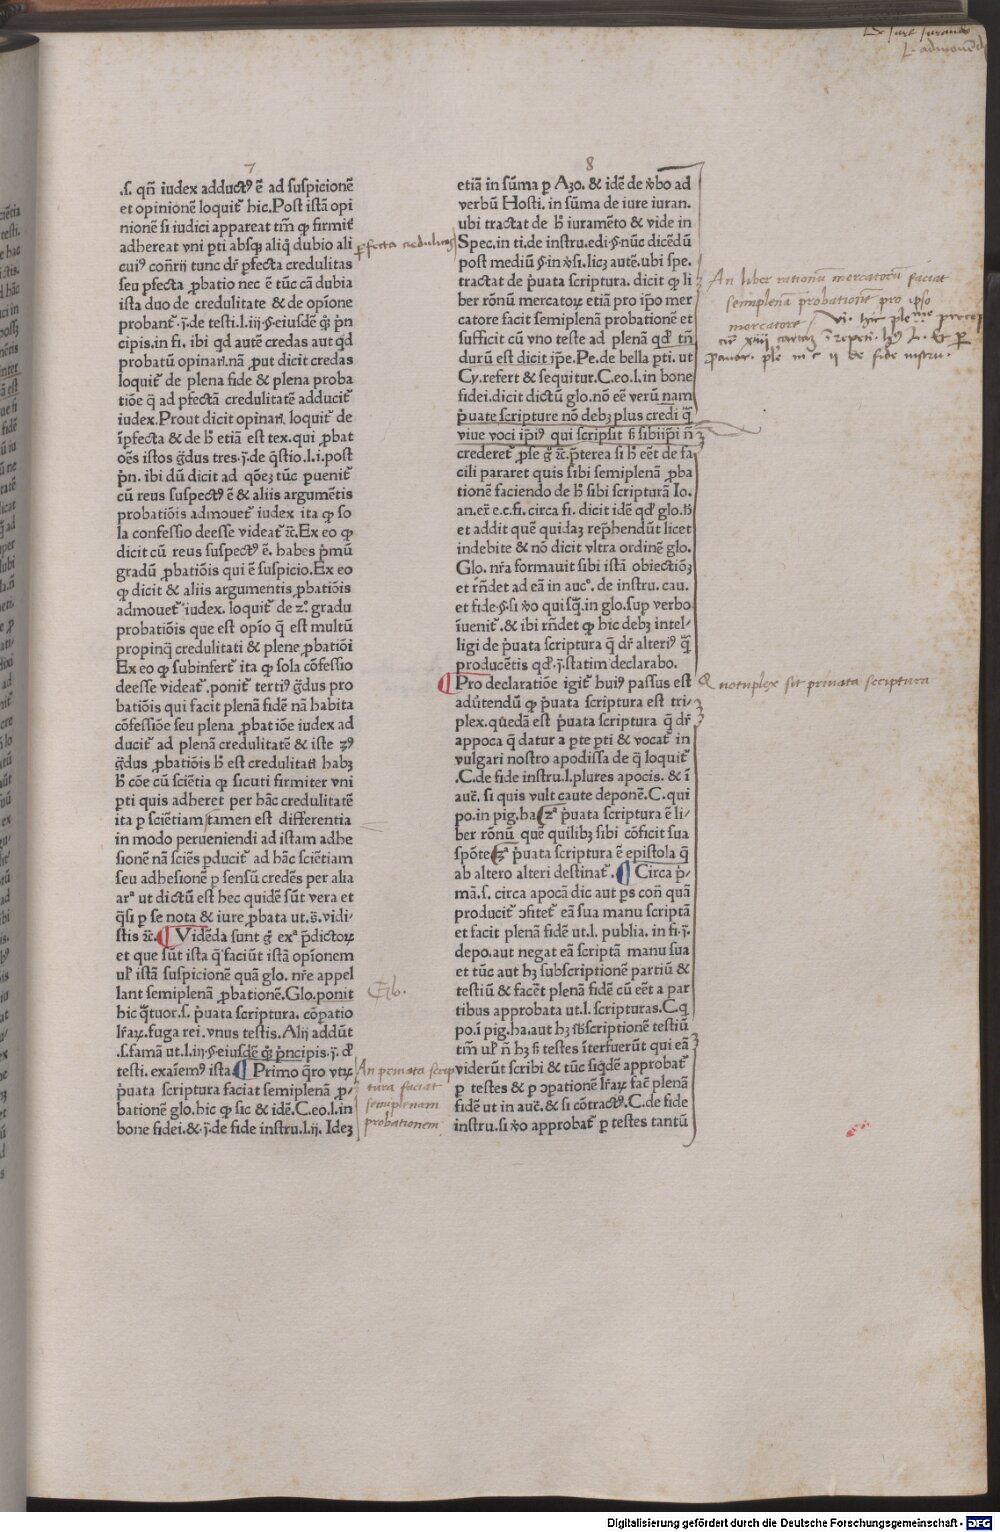 De iure iurando
L. admonendi
7
.s. qn̄ iudex adductꝰ ē ad suspicionē
et opinionē loquit᷑ hic. Post istā opi
nionē si iudici appareat tm̄ ꝙ firmit᷑
adhereat vni ꝑti absqꝫ aliq̄ dubio ali
cuiꝰ con̄rij tunc dr̄ ꝑfecta credulitas
seu ꝑfecta ꝓbatio nec ē tūc cā dubia
ista duo de credulitate & de opiōne
probant᷑.j̄.de testi.l.iij.§ eiusdē q̄ꝫ pn̄
cipis.in fi. ibi qd autē credas aut qd
probatū opinari.nā ꝓut dicit credas
loquit᷑ de plena fide & plena proba
tiōe q̄ ad ꝑfectā credulitatē adducit᷑
iudex. Prout dicit opinari. loquit᷑ de
īꝑfecta & de h̄ etiā est tex. qui ꝓbat
oēs istos g̊dus tres.j̄.de q̄stio.l.i.post
pn̄. ibi dū dicit ad q̄oeꝫ tūc ꝑuenit᷑
cū reus suspectꝰ ē & aliis argumētis
probatiōis admouet᷑ iudex ita ꝙ so
la confessio deesse videat᷑ ⁊c̄. Ex eo ꝙ
dicit cū reus suspectꝰ ē. habes pͥmū
gradū ꝓbatiōis qui ē suspicio. Ex eo
ꝙ dicit & aliis argumentis ꝓbatiōis
admouet᷑ iudex. loquit᷑ de 2ͦ. gradu
probatiōis que est opīo q̄ est multū
propinq̄ credulitati & plene ꝓbatiōi
Ex eo ꝙ subinfert᷑ ita ꝙ sola cōfessio
deesse videat᷑. ponit᷑ tertiꝰ g̊dus pro
batiōis qui facit plenā fidē nā habita
cōfessiōe seu plena ꝓbatiōe iudex ad
ducit᷑ ad plenā credulitatē & iste 3ꝰ
g̊dus ꝓbatiōis h̄ est credulitati habꝫ
h̄ cōe cū sciētia ꝙ sicuti firmiter vni
ꝑti quis adheret per hāc credulitatē
ita ꝑ sciētiam tamen est differentia
in modo perueniendi ad istam adhe
sionē nā sciēs ꝑducit᷑ ad hāc sciētiam
seu adhesionē ꝑ sensū credēs per alia
arᵃ ut dictū est hec quidē sūt vera et
q̄si ꝑ se nota & iure ꝓbata ut.s̄. vidi-
stis ⁊c̄. Vidēda sunt g̊ exᵃ p̄dictoꝝ
et que sūt ista q̄ faciūt istā opīonem
ul᷑ istā suspicionē quā glo. nr̄e appel
lant semiplenā ꝓbationē. Glo. ponit
hic q̄tuor.s. pͥuata scriptura. cōpatio
lr̄aꝝ. fuga rei. vnus testis. Alij addūt
.s. famā ut.l.iij.§ eiusdē q̄ꝫ pͥncipis.j̄. d̓
testi. exaīemꝰ ista. Primo q̄ro vtꝝ
pͥuata scriptura faciat semiplenā ꝓ-
bationē glo. hic ꝙ sic & idē. C.eo.l.in
bone fidei.&.j̄.de fide instru.l.ij. Ideꝫ
ꝑfecta credulitas
An priuata scrip
tura faciat
semiplenam
probationem
8
etiā in sūma ꝑ Azo. & idē de v̓bo ad
verbū Hosti. in sūma de iure iuran.
ubi tractat de h̄ iuramēto & vide in
Spec. in ti. de instru. edi.§ nūc dicēdū
post mediū § in v̓si. licꝫ autē. ubi spe.
tractat de pͥuata scriptura. dicit ꝙ li
ber rōnū mercatoꝝ etiā pro ip̄o mer
catore facit semiplenā probationē et
sufficit cū vno teste ad plenā qd̓ tn̄
durū est dicit ip̄e. Pe. de bella ꝑti. ut
Cy. refert & sequitur. C.eo.l.in bone
fidei. dicit dictū glo. nō eē verū nam
pͥuate scripture nō debꝫ plus credi q̄
viue voci ip̄iꝰ qui scripsit si sibi ip̄i n̄
crederet᷑ ꝓ se g̊ ⁊c̄. p̄terea si h̄ eēt de fa
cili pararet quis sibi semiplenā ꝓba
tionē faciendo de h̄ sibi scripturā Io.
an. er̄ e.c.fi. circa fi. dicit idē qd̓ glo. h̄
et addit quē quidaꝫ rep̄hendūt licet
indebite & nō dicit vltra ordinē glo.
Glo. nr̄a formauit sibi istā obiectiōꝫ
et rn̄det ad eā in aucᵒ. de instru. cau.
et fide.§ si v̓o qui sq̄. in glo. suꝑ verbo
iuenit᷑. & ibi rn̄det ꝙ hic debꝫ intel-
ligi de pͥuata scriptura q̄ dr̄ alteriꝰ q̄
producētis qd̓.j̄. statim declarabo.
Pro declaratiōe igit᷑ huiꝰ passus est
aduͥtendū ꝙ pͥuata scriptura est tri-
plex. quedā est pͥuata scriptura q̄ dr̄
appoca q̄ datur a ꝑte ꝑti & vocat᷑ in
vulgari nostro apodissa de q̄ loquit᷑
.C. de fide instru.l. plures apocis. & ī
auc̄. si quis vult caute deponē. C. qui
po. in pig. ha. 2ᵃ pͥuata scriptura ē li-
ber rōnū quē quilibꝫ sibi cōficit sua
spōte. 3ᵃ pͥuata scriptura ē epistola q̄
ab altero alteri destinat᷑. Circa pͥ-
mā. s. circa apocā dic aut ꝑs con̄ quā
producit᷑ ↄfitet᷑ eā sua manu scriptā
et facit plenā fidē ut.l. publia. in fi.j̄.
depo. aut negat eā scriptā manu sua
et tūc aut hꝫ subscriptionē partiū &
testiū & facēt plenā fidē cū eēt a par
tibus approbata ut.l. scripturas. C. q̄
po. ī pig. ha. aut hꝫ sb̄scriptionē testiū
tm̄ ul᷑ n̄ hꝫ si testes īterfuerūt qui eā
viderūt scribi & tūc siqdē approbat᷑
ꝑ testes & ꝑ ↄpationē lr̄aꝝ fac̄ plenā
fidē ut in auc̄. & si cōtractꝰ. C. de fide
instru. si v̓o approbat᷑ ꝑ testes tantū
An liber rationū mercatorū faciat
semiplenā probationē pro ipso
mercatore
Quotuplex sit priuata scriptura
Digitalisierung gefördert durch die Deutsche Forschungsgemeinschaft - DFG